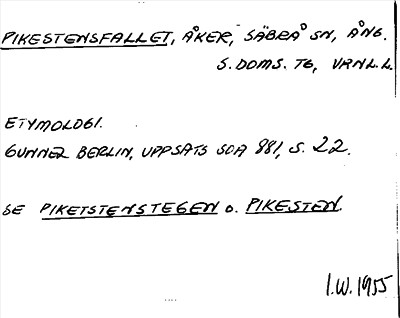 PIKESTENSFALLET, ÅKER, SÄBRÅ SN, ÅNG.
S. DOMS. TG, VRNL. L.
ETYMOLOGI.
GUNNEL BERLIN, UPPSATS SOA 881, S. 22.
SE PIKETSTENSTEGEN O. PIKESTEN.
I.W. 1955